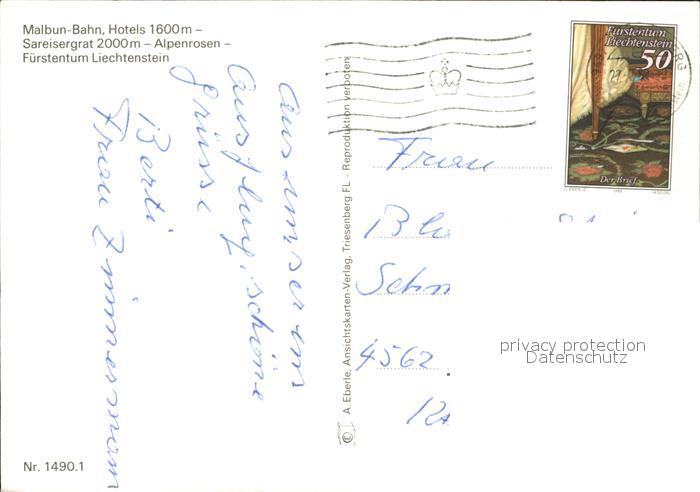 Malbun-Bahn, Hotels 1600m –
Sareisergrat 2000m – Alpenrosen –
Fürstentum Liechtenstein
aus unserem
Ausflug schöne
Grüsse
Berti
Frau Zimmermann
Nr. 1490.1
© A. Eberle, Ansichtskarten-Verlag, Triesenberg FL - Reproduktion verboten
Fürstentum
Liechtenstein
50
Der Brief
Frau
4562
privacy protection
Datenschutz